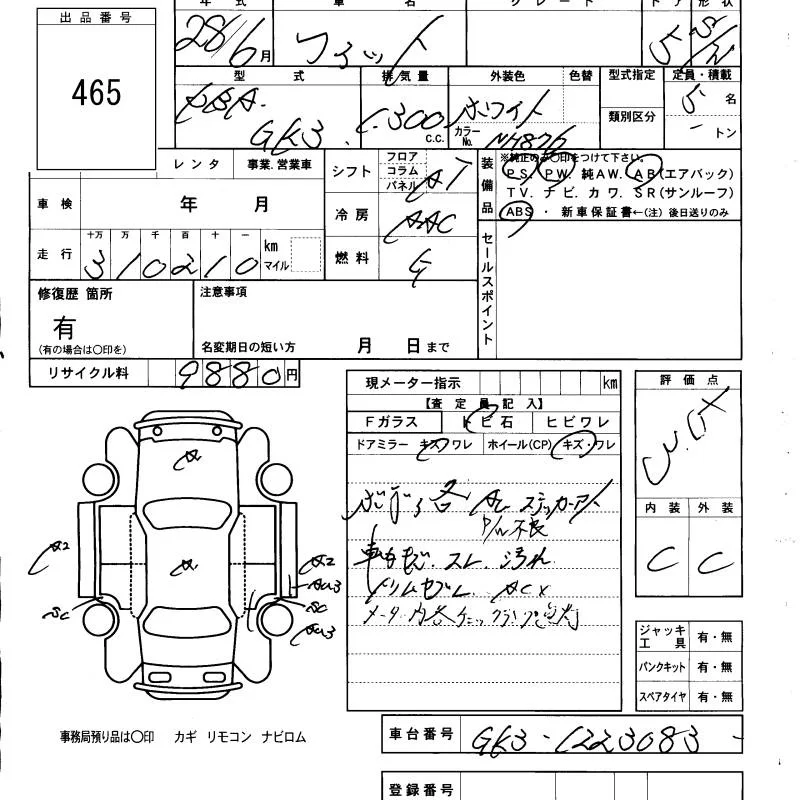 出品番号
465
年 式 車 名 グレード ドア 形状
28/6月 フィット 5
型 式 排気量 外装色 色替 型式指定 定員・積載
DBA-GK3 1300 C.C. ホワイト カラーNo. NH876 類別区分 5名 トン
レンタ 事業.営業車
車 検 年 月
走 行 十万 万 千 百 十 一 km マイル
310210
シフト フロア コラム パネル AT
冷 房 AAC
燃 料 G
装備品 ※純正のみ○印をつけて下さい。
PS. PW. 純AW. AB(エアバック)
TV. ナビ. カワ. SR(サンルーフ)
ABS ・ 新車保証書←(注) 後日送りのみ
セールスポイント
修復歴 箇所
有
(有の場合は○印を)
注意事項
名変期日の短い方 月 日まで
リサイクル料 9880円
現メーター指示 km
【査定員記入】
Fガラス トビ石 ヒビワレ
ドアミラー キズ・ワレ ホイール(CP) キズ・ワレ
ボディ各 AL ステッカーアト
P/W不良
車内 スレ.汚れ
ACX
評価点
内装 外装
C C
A
A
A2
A2
SC
SC
ジャッキ工具 有・無
パンクキット 有・無
スペアタイヤ 有・無
事務局預り品は○印 カギ リモコン ナビロム
車台番号 GK3-1223083
登録番号